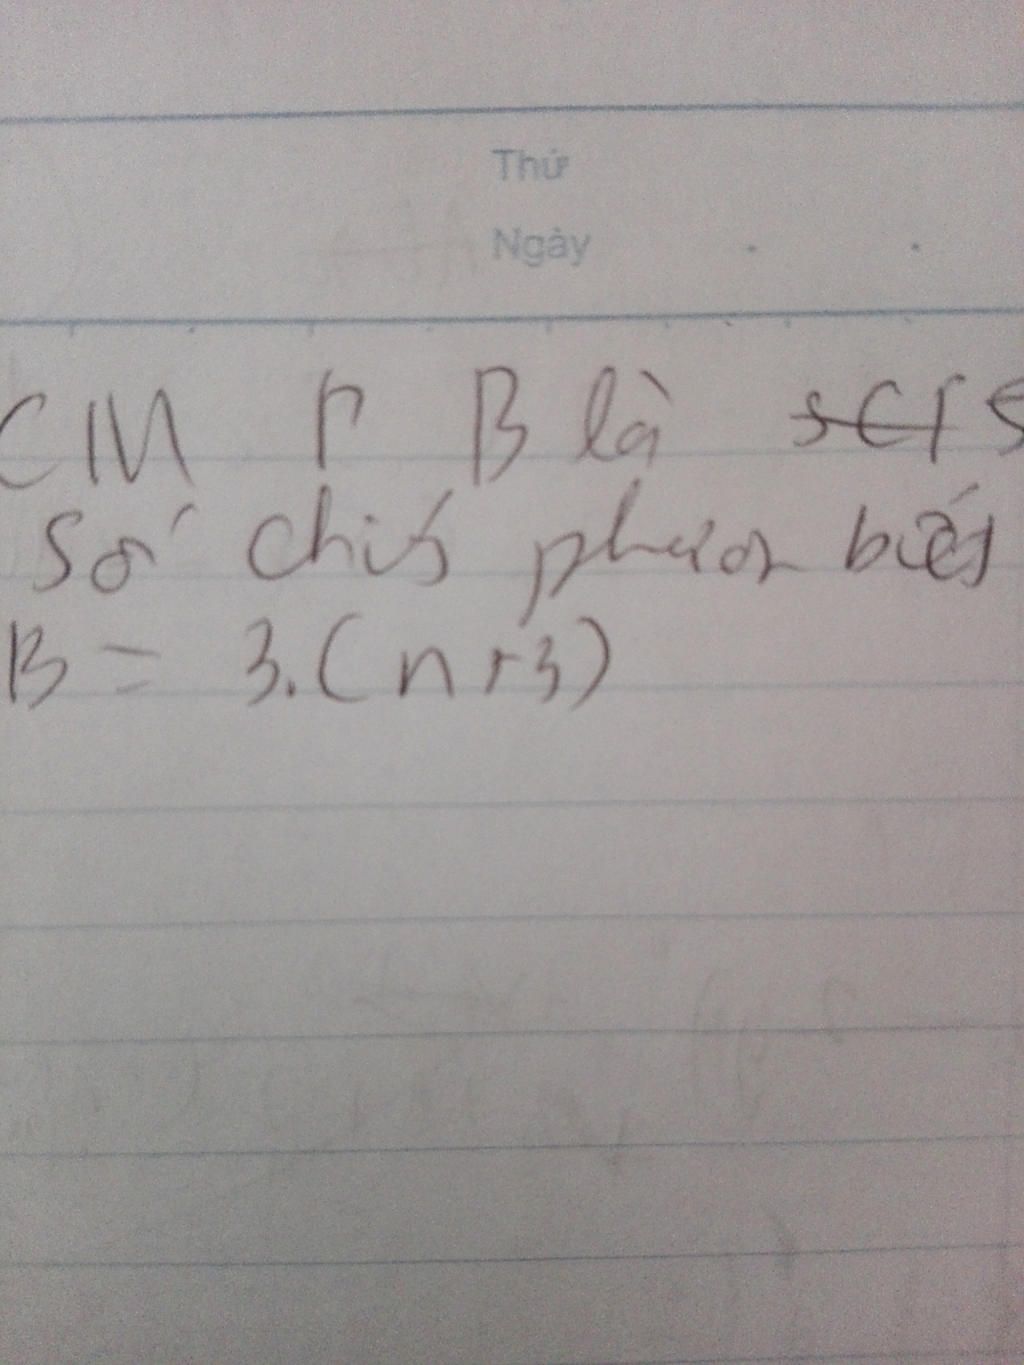 Thứ
Ngày
CM r B là
số chính phương biết
B = 3.(n+3)